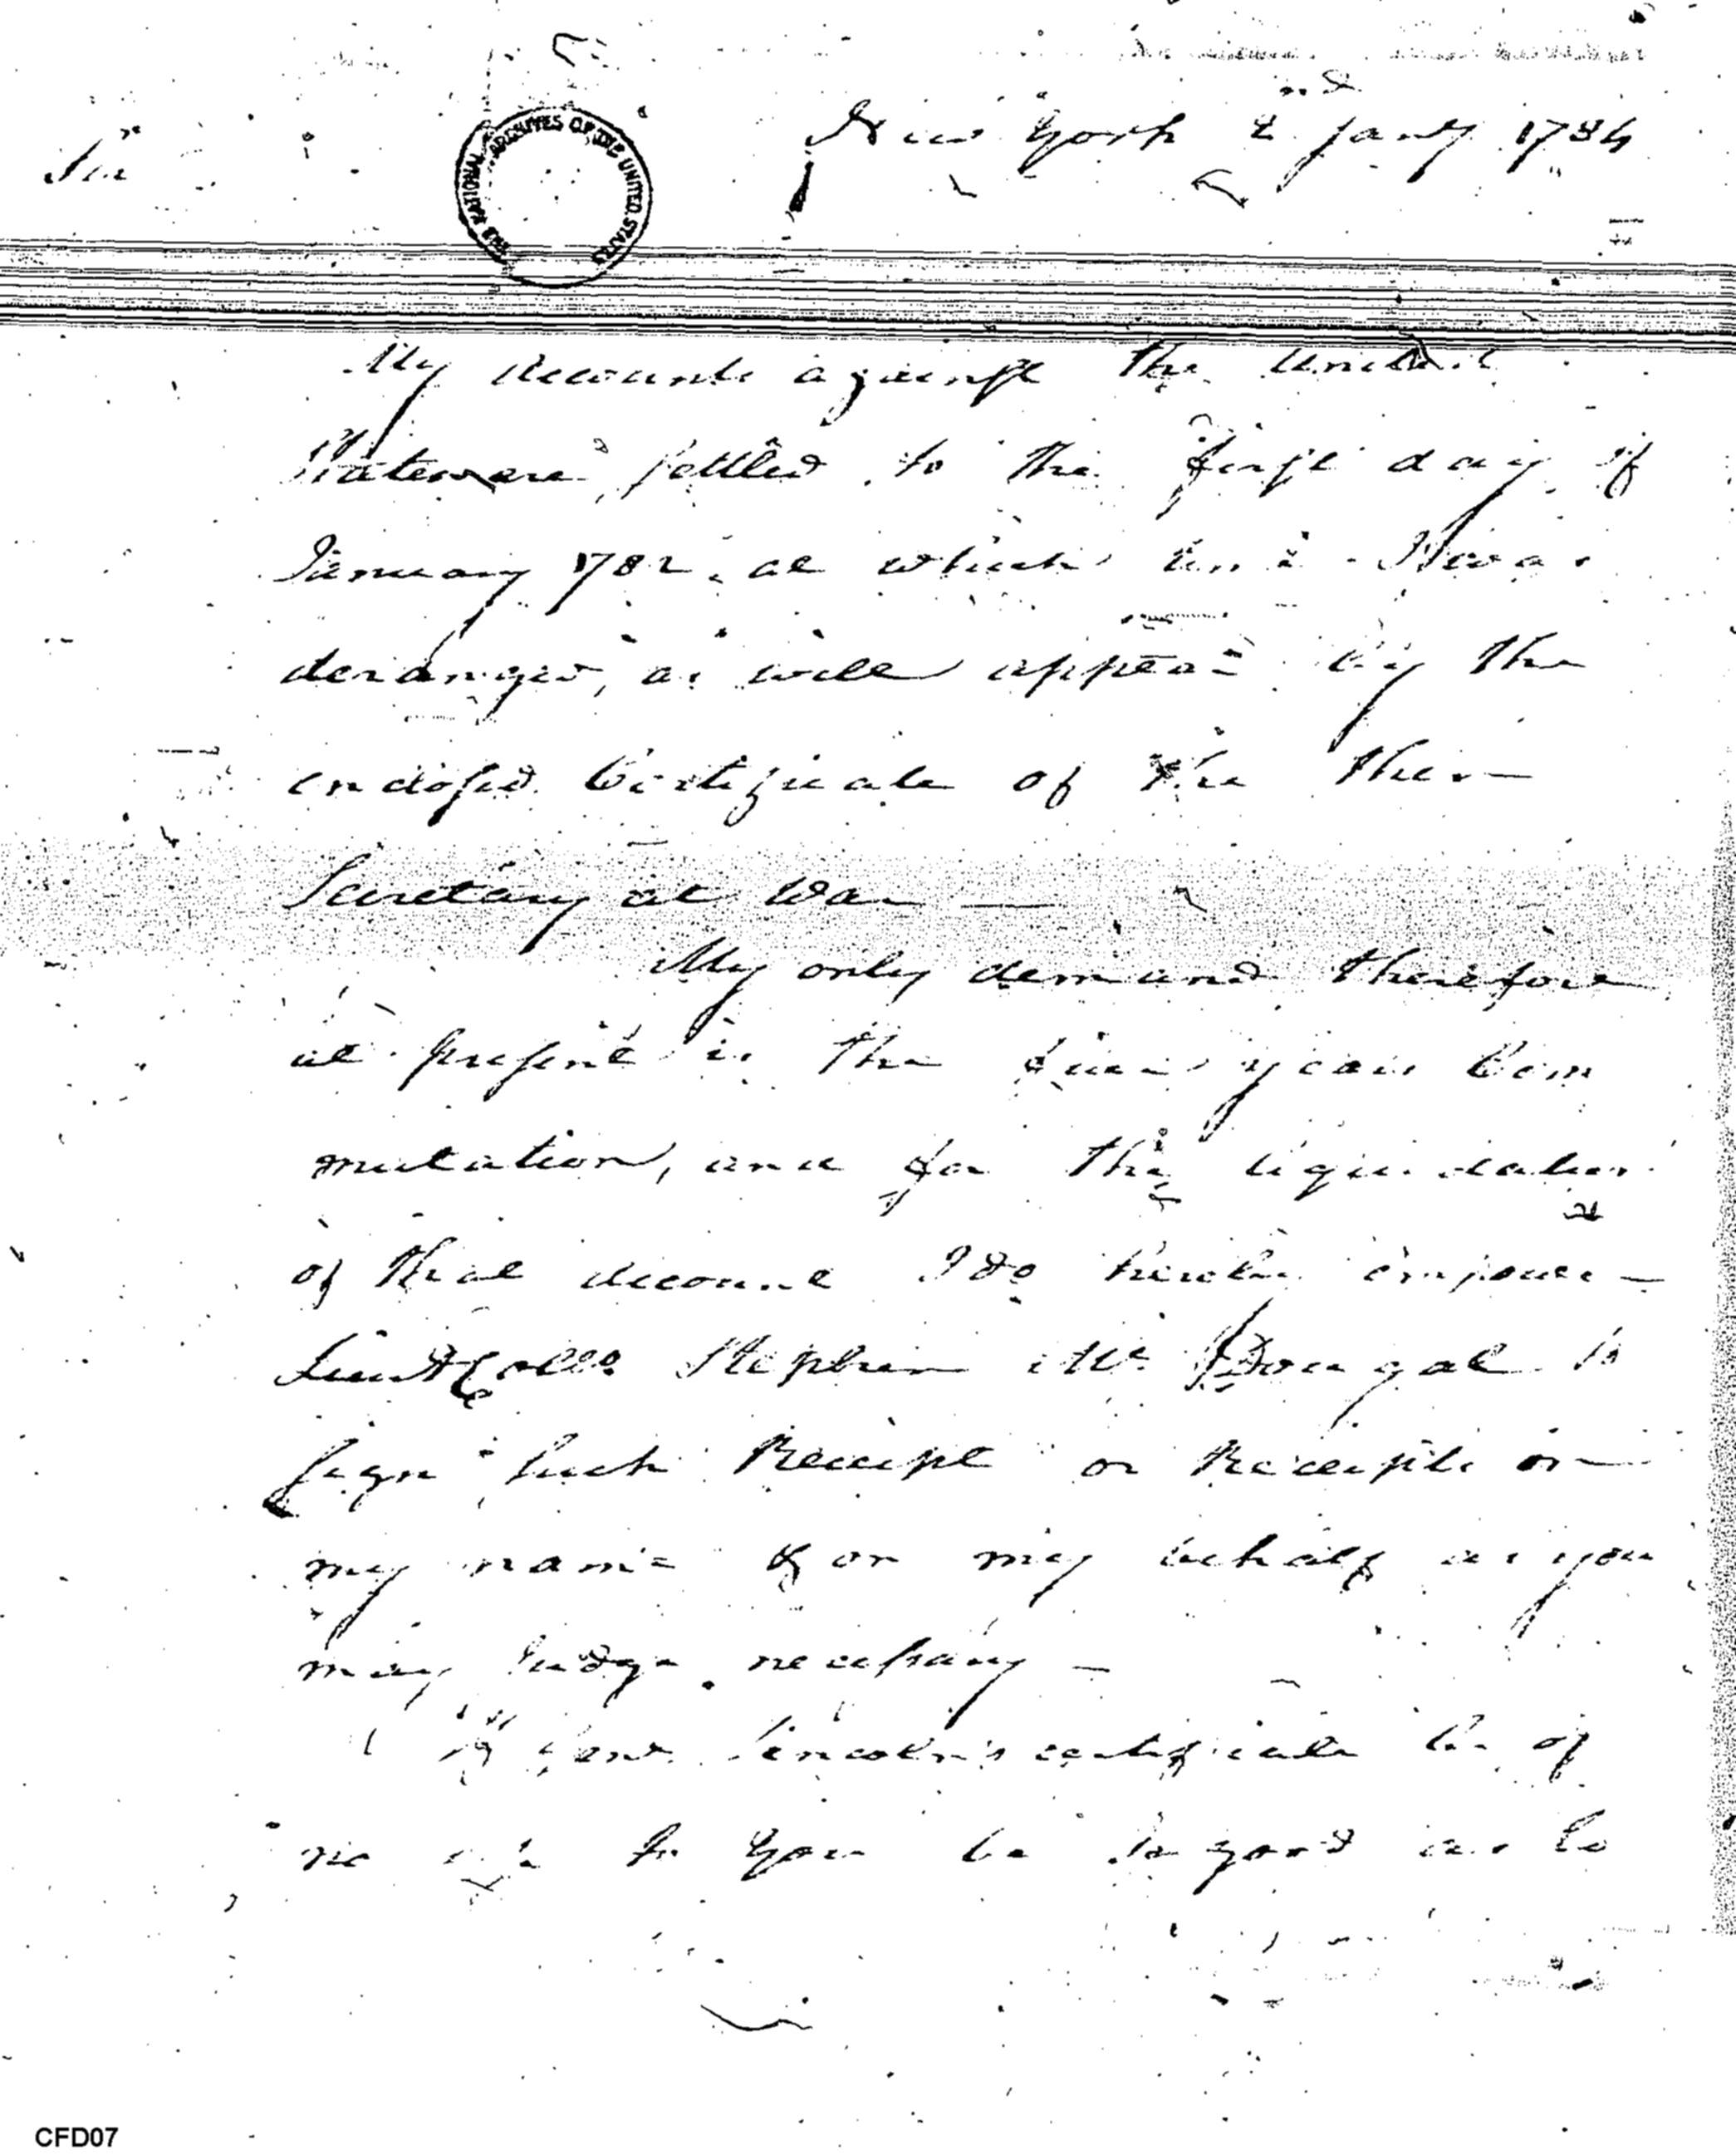 New York 2nd Jany 1784
Sir
THE NATIONAL ARCHIVES OF THE UNITED STATES
My Accounts against the United
States are settled to the first day of
January 1782, at which time I was
deranged, as will appear by the
enclosed Certificate of the then
Secretary at War —
My only demand therefore
at present is the five years Com
mutation, and for the liquidation
of that Account I do hereby empower —
Lieut Coll Stephen Mc Dougal to
sign such Receipt or Receipts in
my name & on my behalf as you
may Judge necessary —
If Genl Lincoln's certificate be of
no use to you be so good as to
CFD07